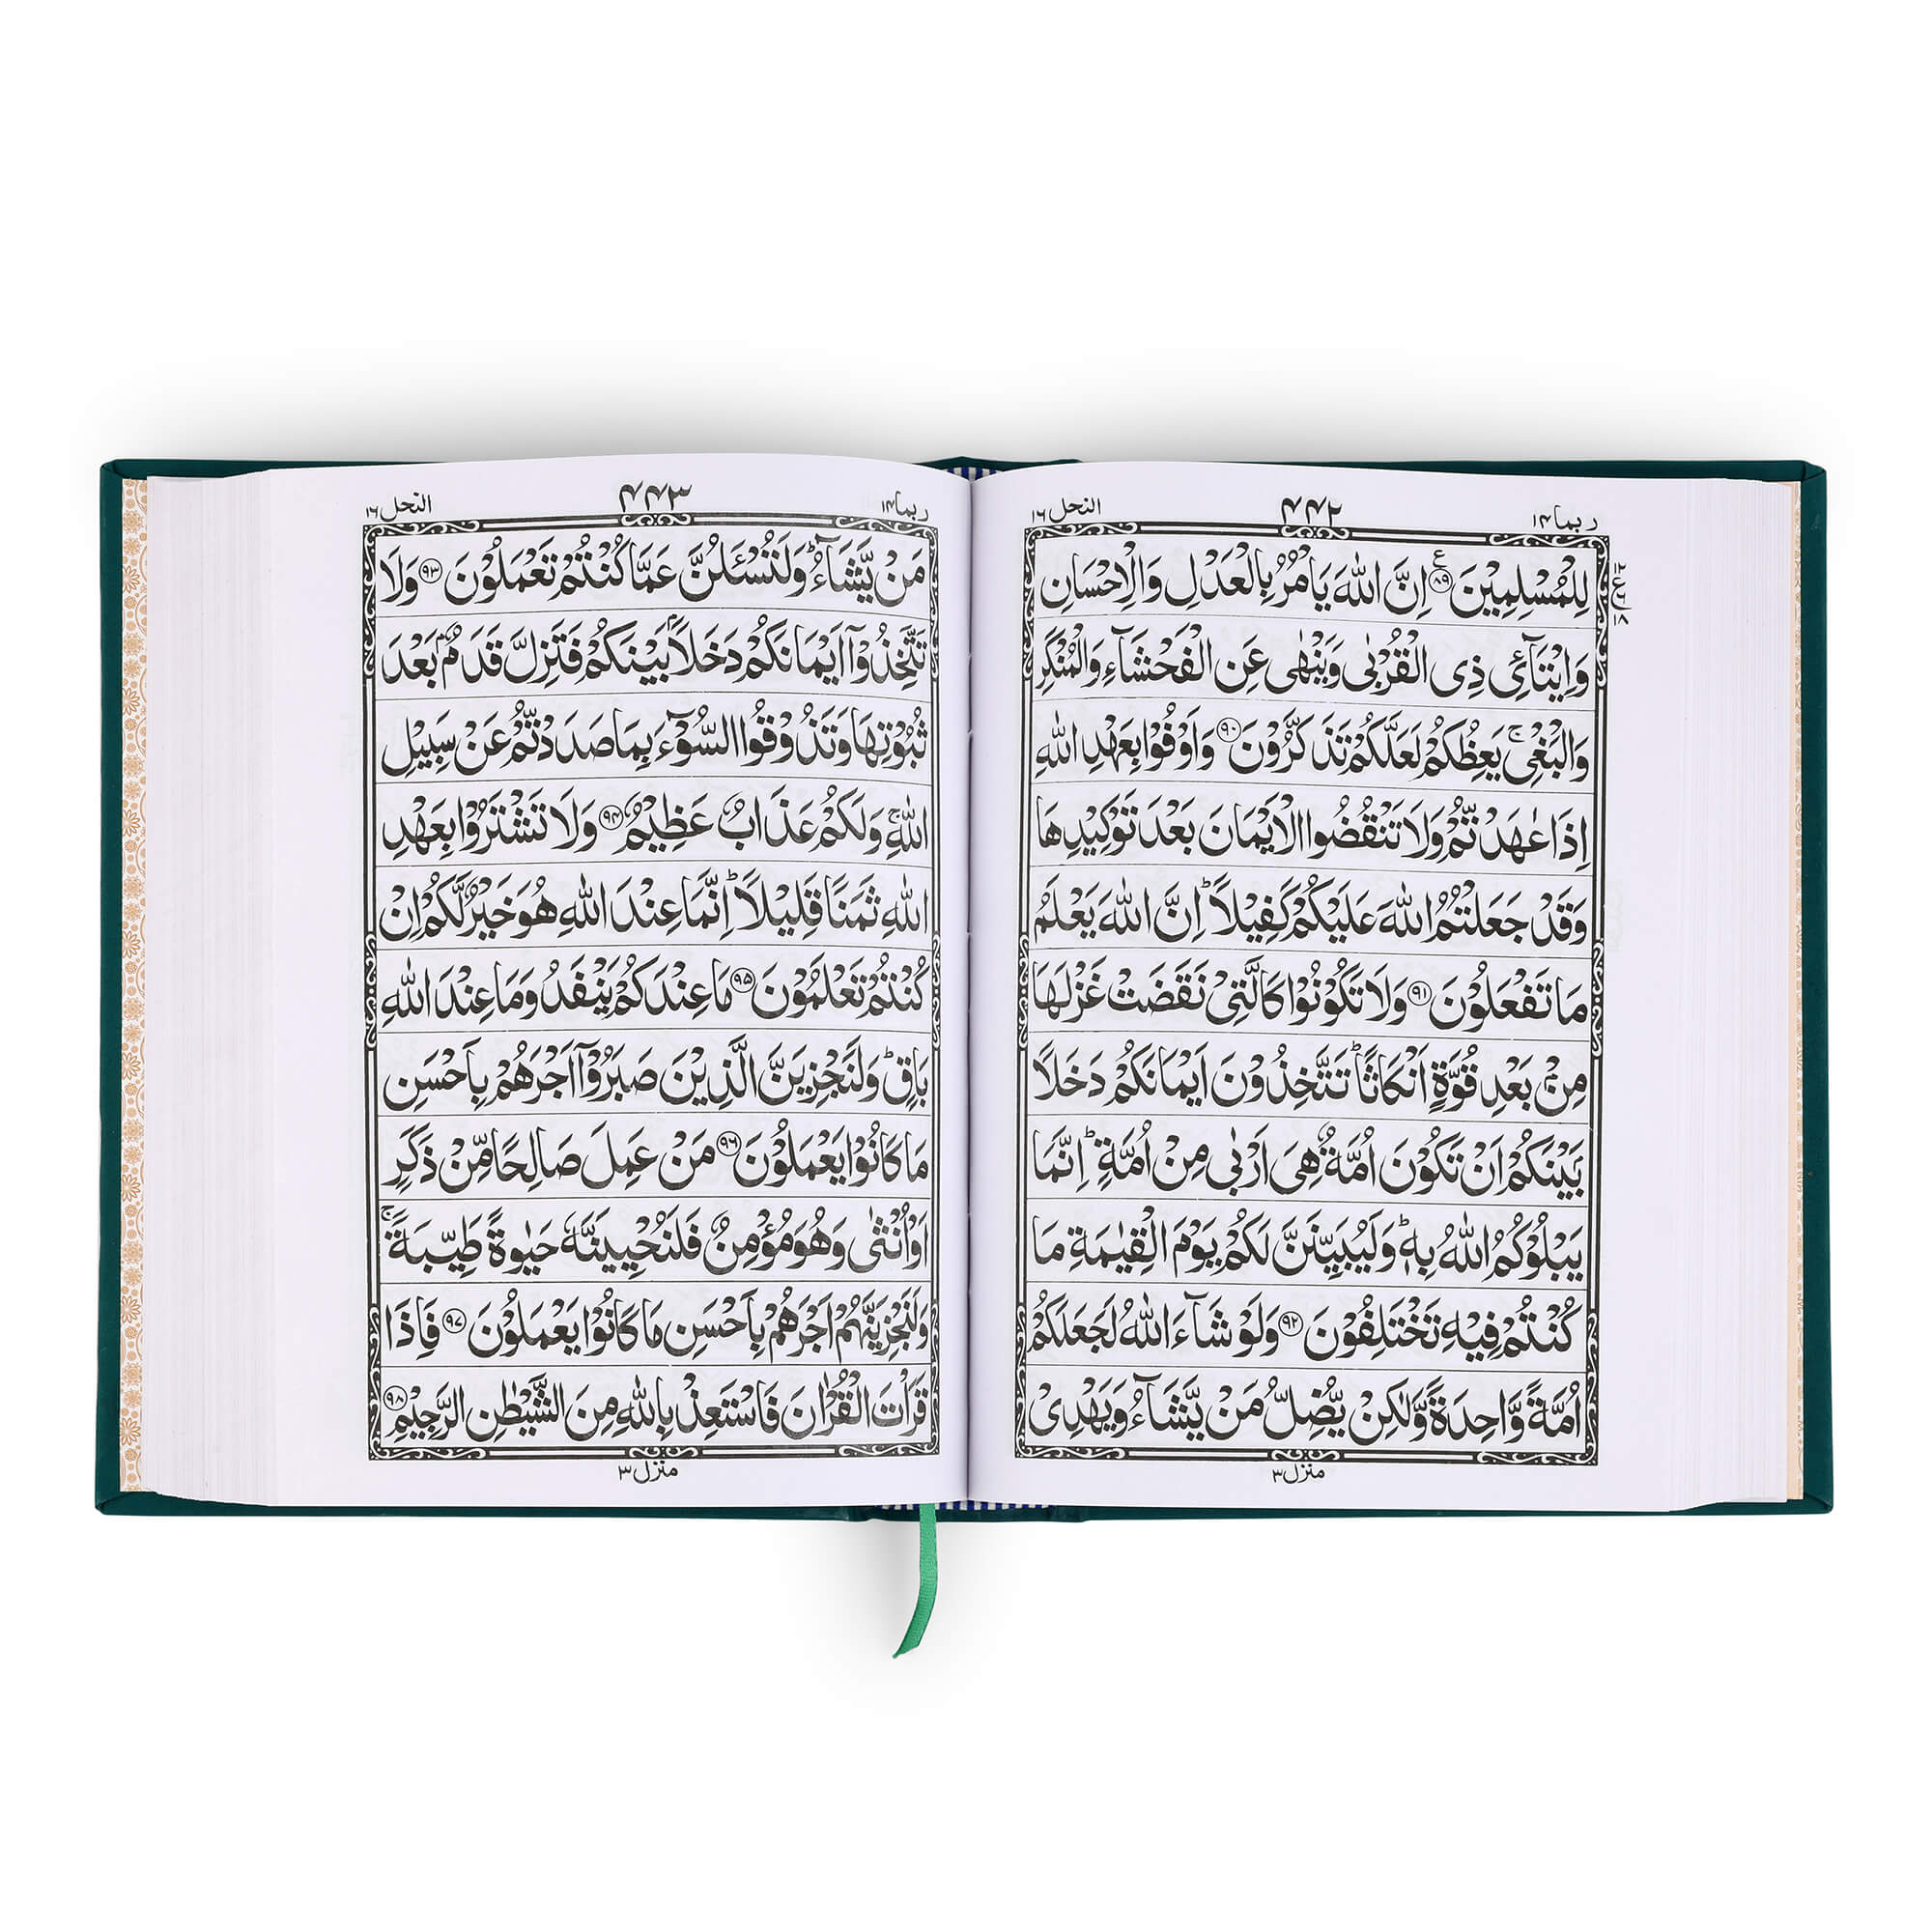 ربما ۱۴
۴۴۲
النحل ۱۶
لِلْمُسْلِمِيْنَ ﴿۸۹﴾ ع اِنَّ اللّٰهَ يَاْمُرُ بِالْعَدْلِ وَالْاِحْسَانِ
۱۲
ع
۶
۱۸
وَاِيْتَآئِ ذِي الْقُرْبٰى وَيَنْهٰى عَنِ الْفَحْشَآءِ وَالْمُنْكَرِ
وَالْبَغْيِ ۚ يَعِظُكُمْ لَعَلَّكُمْ تَذَكَّرُوْنَ ﴿۹۰﴾ وَاَوْفُوْا بِعَهْدِ اللّٰهِ
اِذَا عٰهَدْتُّمْ وَلَا تَنْقُضُوا الْاَيْمَانَ بَعْدَ تَوْكِيْدِهَا
وَقَدْ جَعَلْتُمُ اللّٰهَ عَلَيْكُمْ كَفِيْلًا ؕ اِنَّ اللّٰهَ يَعْلَمُ
مَا تَفْعَلُوْنَ ﴿۹۱﴾ وَلَا تَكُوْنُوْا كَالَّتِيْ نَقَضَتْ غَزْلَهَا
مِنْۢ بَعْدِ قُوَّةٍ اَنْكَاثًا ؕ تَتَّخِذُوْنَ اَيْمَانَكُمْ دَخَلًا
بَيْنَكُمْ اَنْ تَكُوْنَ اُمَّةٌ هِيَ اَرْبٰى مِنْ اُمَّةٍ ؕ اِنَّمَا
يَبْلُوْكُمُ اللّٰهُ بِهٖ ؕ وَلَيُبَيِّنَنَّ لَكُمْ يَوْمَ الْقِيٰمَةِ مَا
كُنْتُمْ فِيْهِ تَخْتَلِفُوْنَ ﴿۹۲﴾ وَلَوْ شَآءَ اللّٰهُ لَجَعَلَكُمْ
اُمَّةً وَّاحِدَةً وَّلٰكِنْ يُّضِلُّ مَنْ يَّشَآءُ وَيَهْدِيْ
منزل ۳
ربما ۱۴
۴۴۳
النحل ۱۶
مَنْ يَّشَآءُ ؕ وَلَتُسْـَٔلُنَّ عَمَّا كُنْتُمْ تَعْمَلُوْنَ ﴿۹۳﴾ وَلَا
تَتَّخِذُوْۤا اَيْمَانَكُمْ دَخَلًۢا بَيْنَكُمْ فَتَزِلَّ قَدَمٌۢ بَعْدَ
ثُبُوْتِهَا وَتَذُوْقُوا السُّوْٓءَ بِمَا صَدَدْتُّمْ عَنْ سَبِيْلِ
اللّٰهِ ۚ وَلَكُمْ عَذَابٌ عَظِيْمٌ ﴿۹۴﴾ وَلَا تَشْتَرُوْا بِعَهْدِ
اللّٰهِ ثَمَنًا قَلِيْلًا ؕ اِنَّمَا عِنْدَ اللّٰهِ هُوَ خَيْرٌ لَّكُمْ اِنْ
كُنْتُمْ تَعْلَمُوْنَ ﴿۹۵﴾ مَا عِنْدَكُمْ يَنْفَدُ وَمَا عِنْدَ اللّٰهِ
بَاقٍ ؕ وَلَنَجْزِيَنَّ الَّذِيْنَ صَبَرُوْۤا اَجْرَهُمْ بِاَحْسَنِ
مَا كَانُوْا يَعْمَلُوْنَ ﴿۹۶﴾ مَنْ عَمِلَ صَالِحًا مِّنْ ذَكَرٍ
اَوْ اُنْثٰى وَهُوَ مُؤْمِنٌ فَلَنُحْيِيَنَّهٗ حَيٰوةً طَيِّبَةً ۚ
وَلَنَجْزِيَنَّهُمْ اَجْرَهُمْ بِاَحْسَنِ مَا كَانُوْا يَعْمَلُوْنَ ﴿۹۷﴾ فَاِذَا
قَرَاْتَ الْقُرْاٰنَ فَاسْتَعِذْ بِاللّٰهِ مِنَ الشَّيْطٰنِ الرَّجِيْمِ ﴿۹۸﴾
منزل ۳